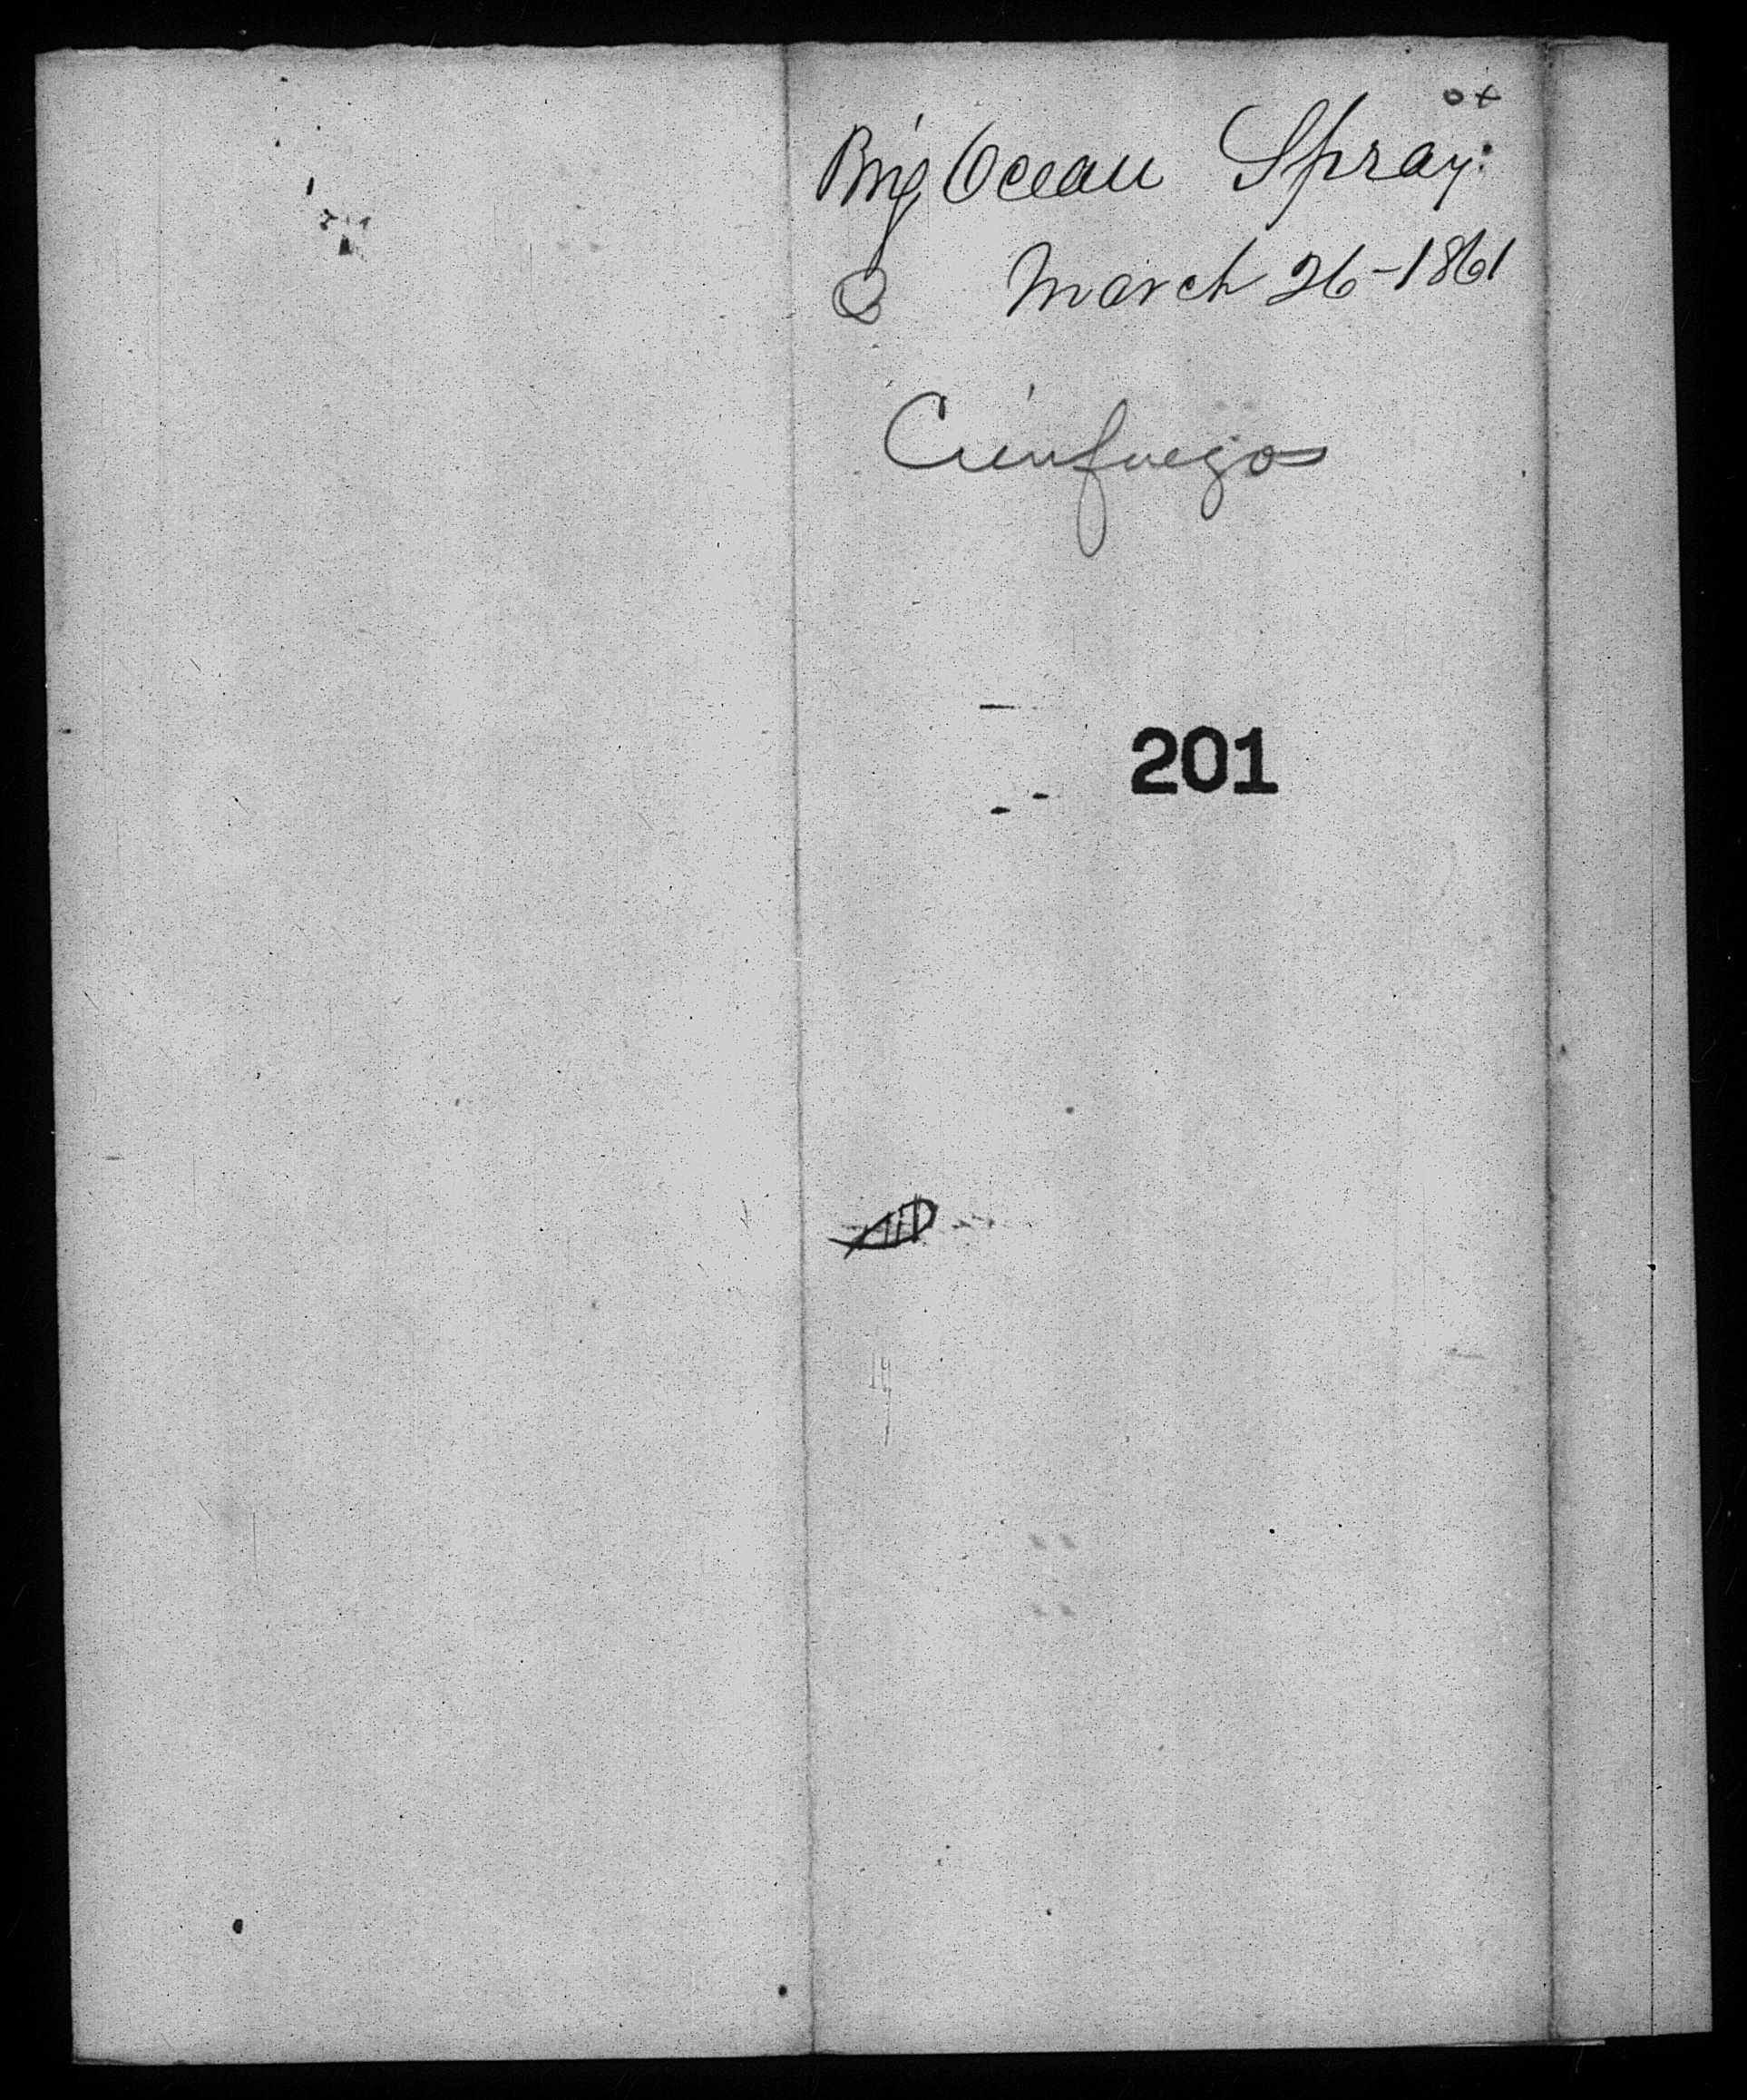 Brig Ocean Spray.
March 26-1861
Cienfuegos
201